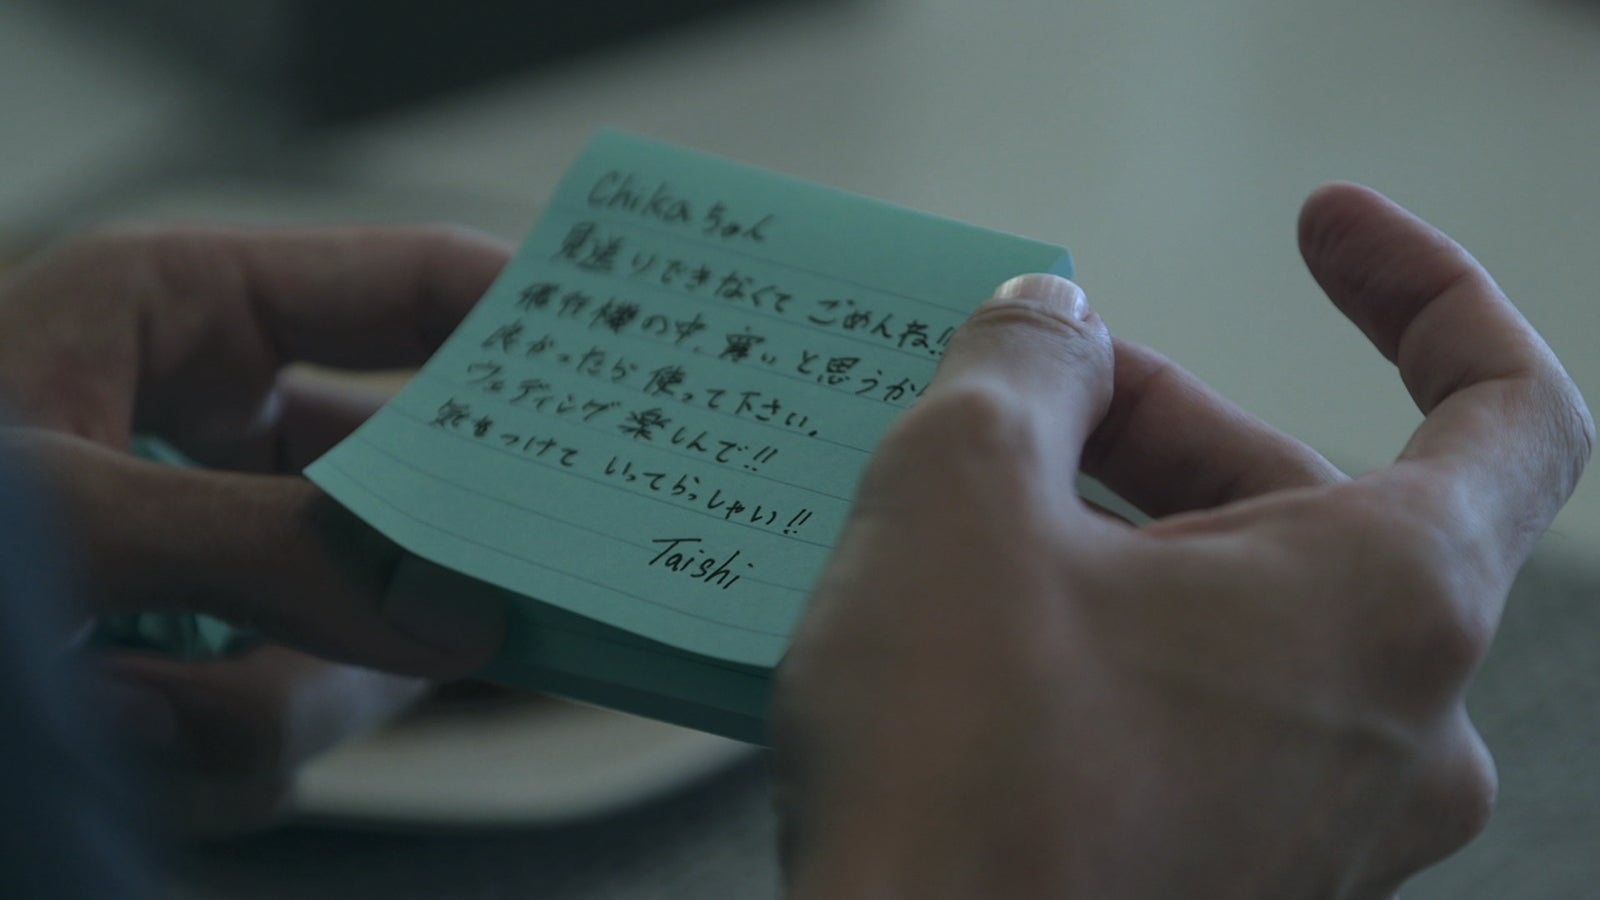 Chikaちゃん
見送りできなくて ごめんね!!
飛行機の中、寒いと思うから
良かったら使って下さい。
ウェディング楽しんで!!
気をつけて いってらっしゃい!!
Taishi